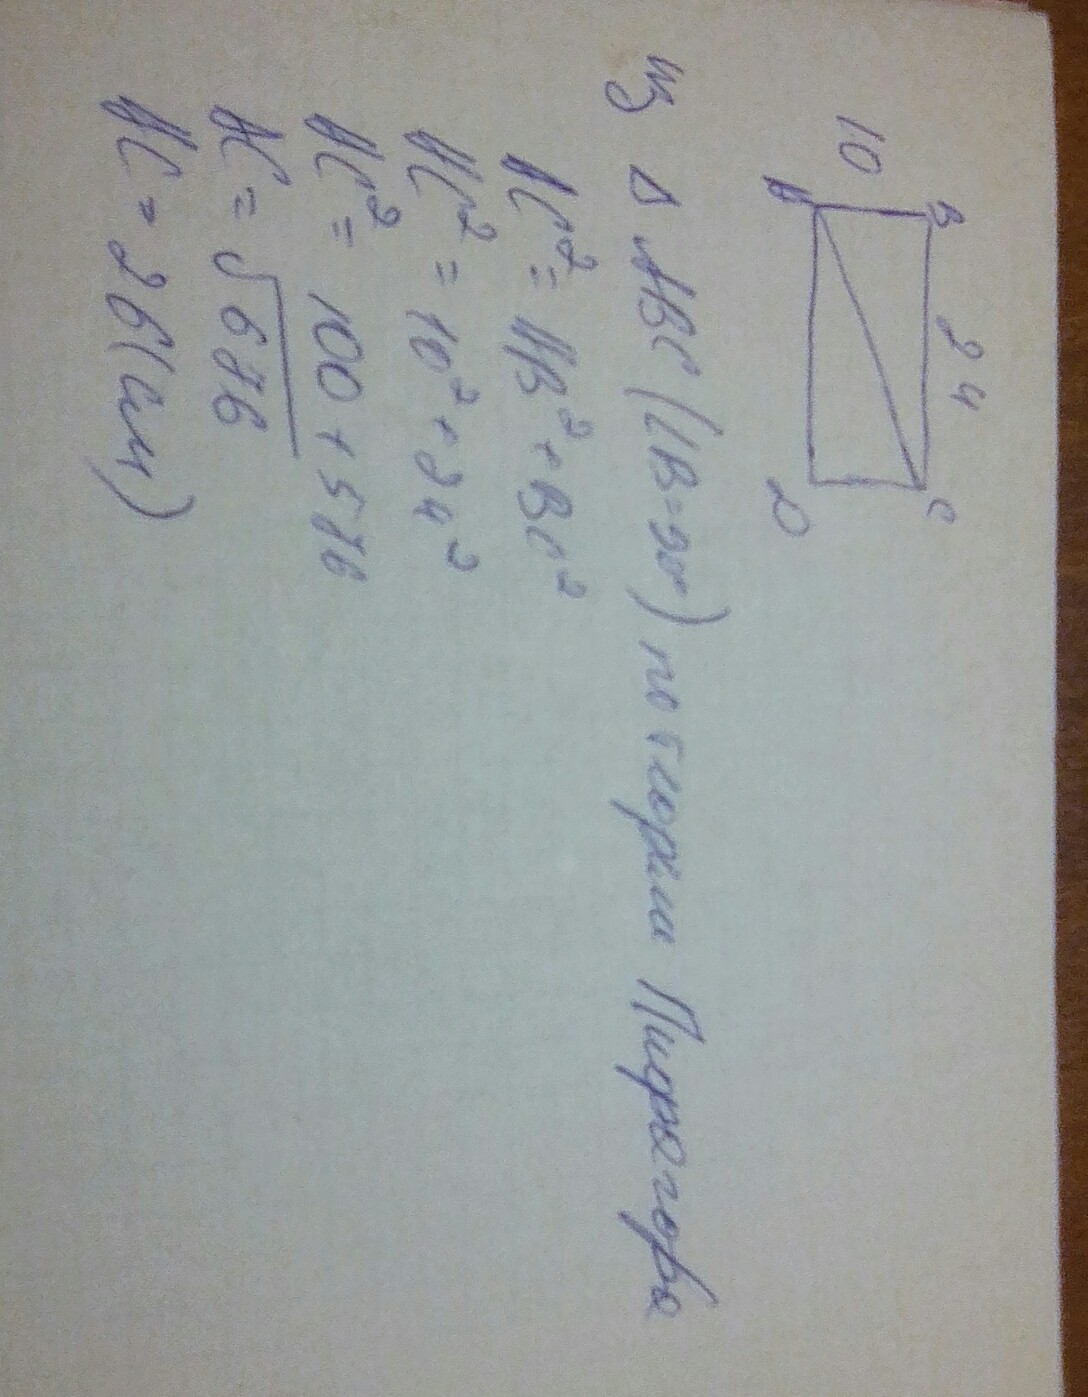 B 24 C
10
A D
Из Δ ABC (∠B=90°) по теореме Пифагора
AC² = AB² + BC²
AC² = 10² + 24²
AC² = 100 + 576
AC = √676
AC = 26 (см)